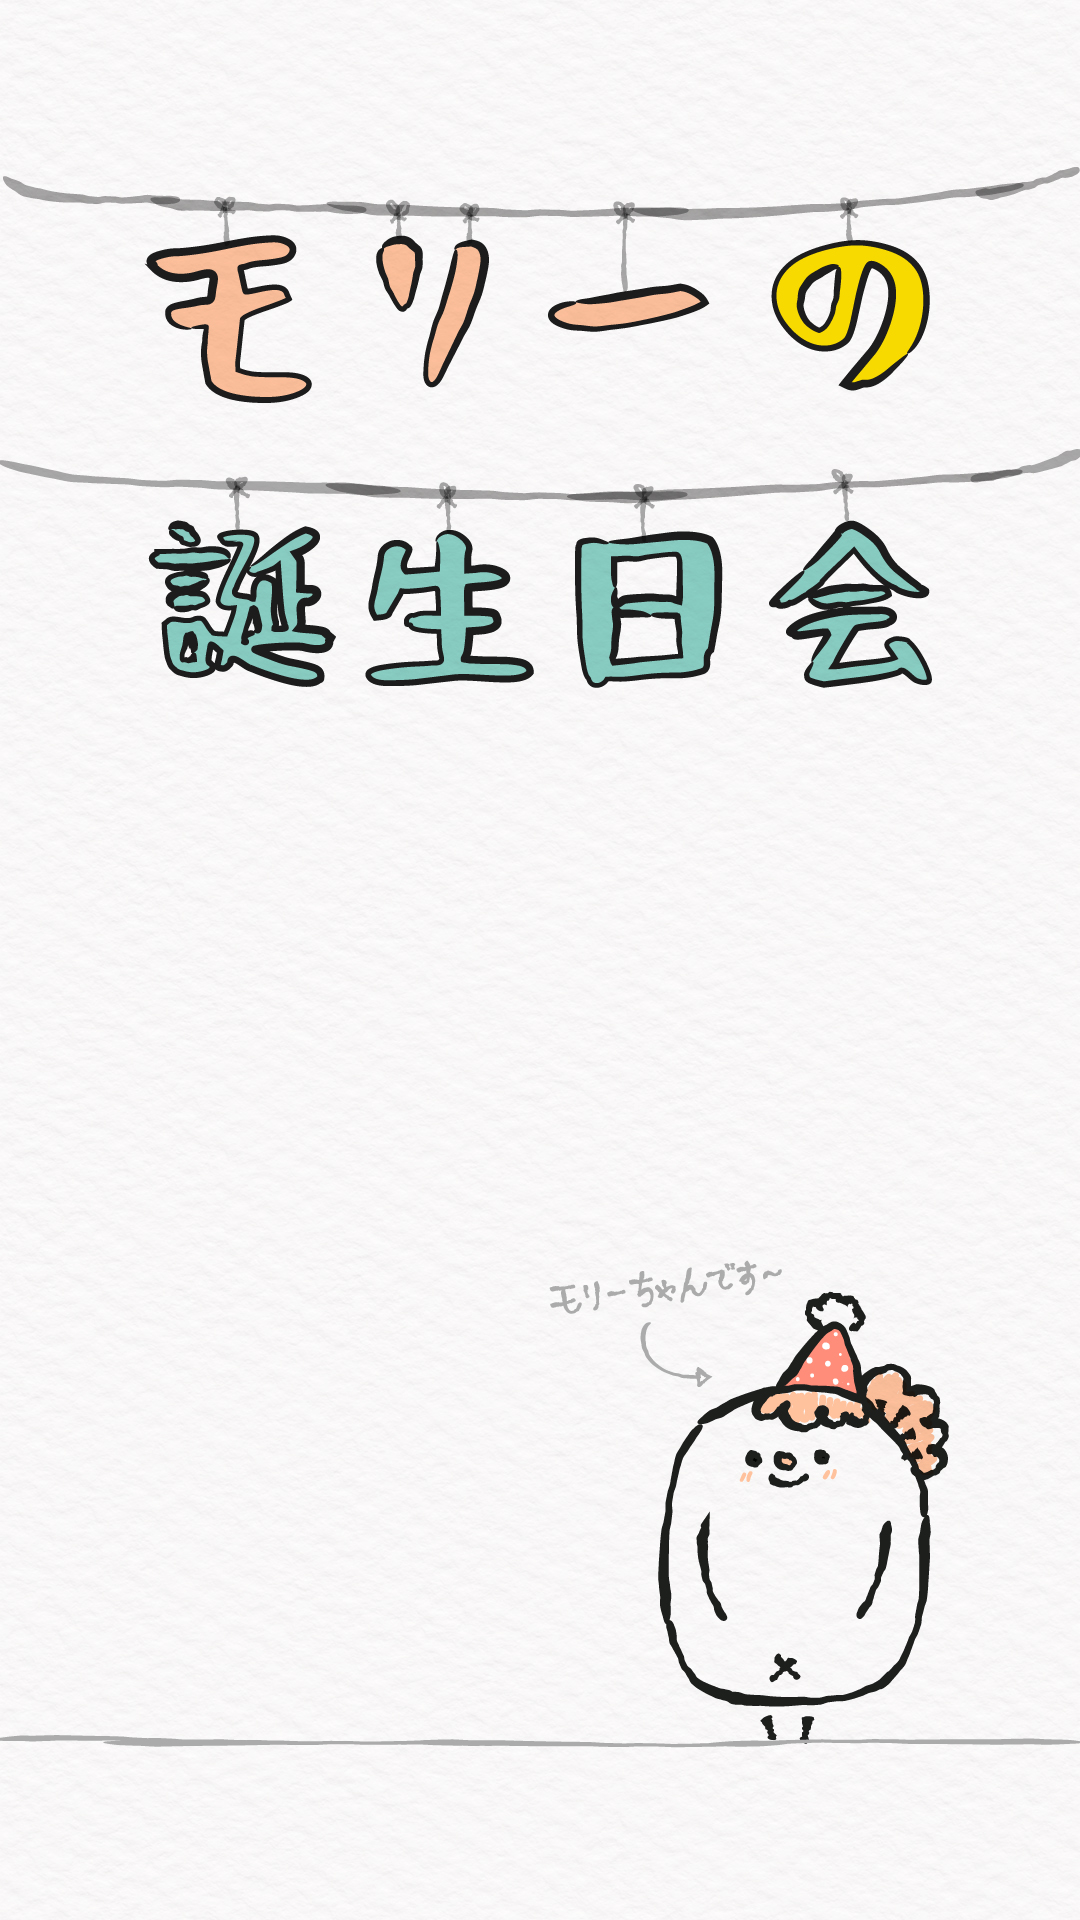 モリーの
誕生日会
モリーちゃんです〜